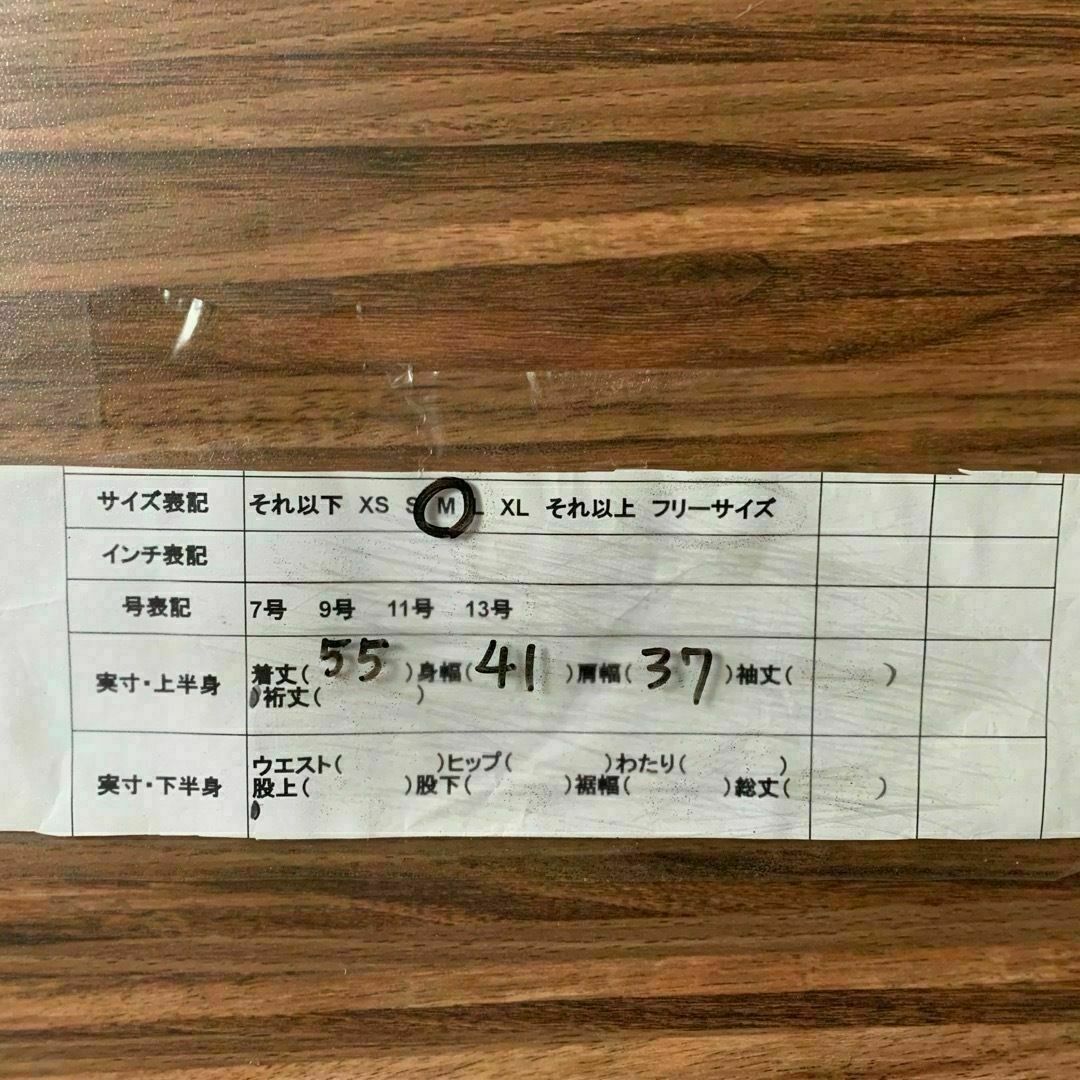 サイズ表記 それ以下 XS S M L XL それ以上 フリーサイズ
インチ表記
号表記 7号 9号 11号 13号
実寸・上半身 着丈( 55 )身幅( 41 )肩幅( 37 )袖丈( )
)裄丈( )
実寸・下半身 ウエスト( )ヒップ( )わたり( )
股上( )股下( )裾幅( )総丈( )
)